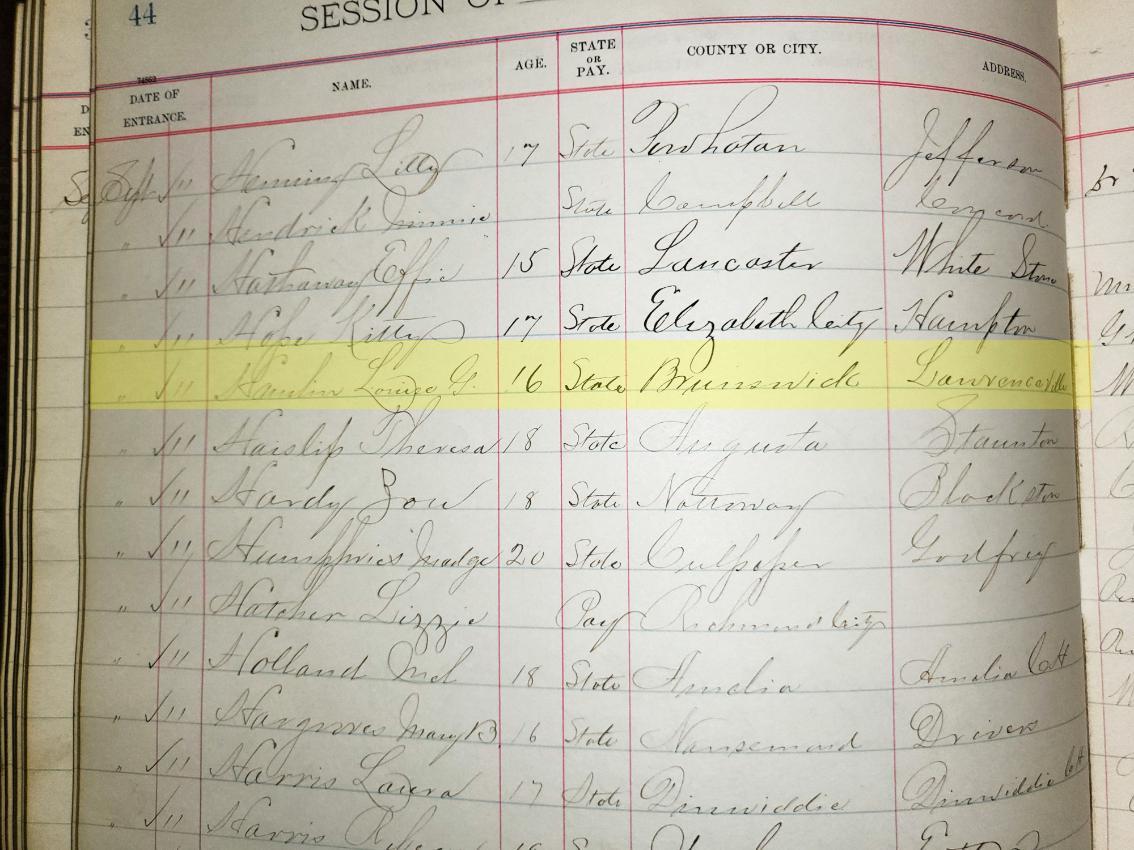 44 SESSION OF
74563
DATE OF ENTRANCE. NAME. AGE. STATE OR PAY. COUNTY OR CITY. ADDRESS.
Sept √11 Heming Lilly 17 State Powhatan Jefferson
" √11 Hendrick Minnie State Campbell Concord
" √11 Hathaway Effie 15 State Lancaster White Stone
" √11 Hope Kitty 17 State Elizabeth City Hampton
" √11 Hamlin Louise G. 16 State Brunswick Lawrenceville
" √11 Haislip Theresa 18 State Augusta Staunton
" √11 Hardy Zou 18 State Nottoway Blackston
" √11 Humphries Madge 20 State Culpeper Godfrey
" √11 Hatcher Lizzie Pay Richmond City
" √11 Holland Mel 18 State Amelia Amelia CtH
" √11 Hargroves Mary B 16 State Nansemond Drivers
" √11 Harris Laura 17 State Dinwiddie Dinwiddie CtH
" √11 Harris